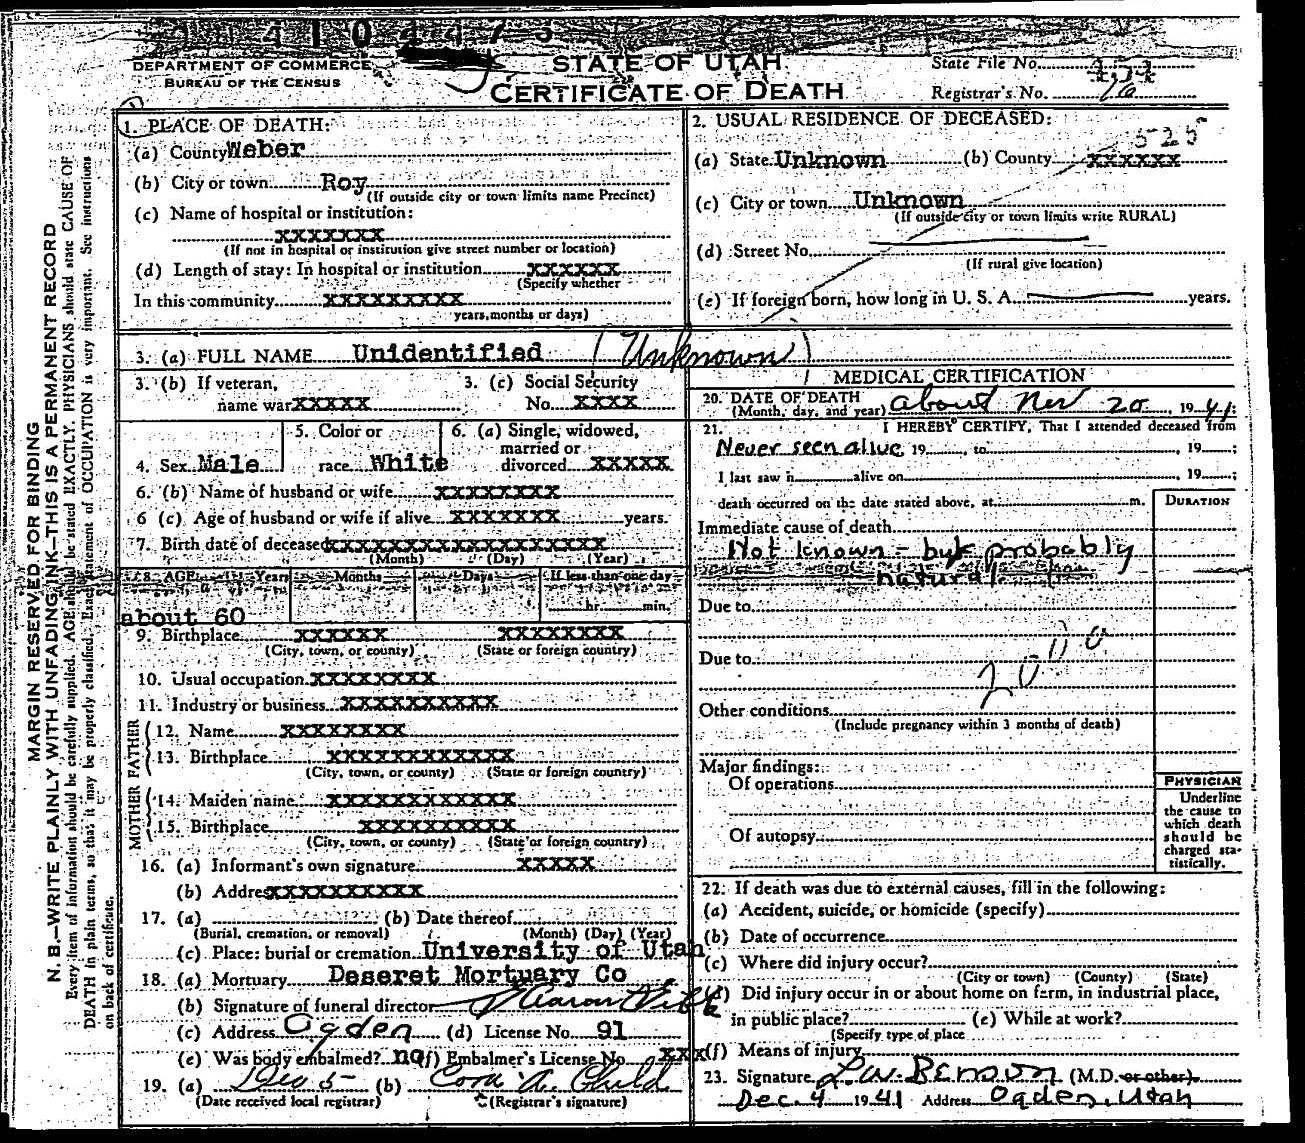 DEPARTMENT OF COMMERCE
BUREAU OF THE CENSUS
STATE OF UTAH
CERTIFICATE OF DEATH
State File No.
Registrar's No. 76
MARGIN RESERVED FOR BINDING
N. B.—WRITE PLAINLY WITH UNFADING INK—THIS IS A PERMANENT RECORD
Every item of information should be carefully supplied. AGE should be stated EXACTLY. PHYSICIANS should state CAUSE OF
DEATH in plain terms, so that it may be properly classified. Exact statement of OCCUPATION is very important. See instructions
on back of certificate.
1. PLACE OF DEATH:
(a) County Weber
(b) City or town Roy
(If outside city or town limits name Precinct)
(c) Name of hospital or institution:
XXXXXXX
(If not in hospital or institution give street number or location)
(d) Length of stay: In hospital or institution XXXXXX
(Specify whether
In this community XXXXXXXXX
years, months or days)
2. USUAL RESIDENCE OF DECEASED:
525
(a) State Unknown (b) County XXXXXX
(c) City or town Unknown
(If outside city or town limits write RURAL)
(d) Street No.
(If rural give location)
(e) If foreign born, how long in U. S. A. years.
3. (a) FULL NAME Unidentified (Unknown)
3. (b) If veteran,
name war XXXXX
3. (c) Social Security
No. XXXX
4. Sex Male
5. Color or
race White
6. (a) Single, widowed,
married or
divorced XXXXX
6. (b) Name of husband or wife XXXXXXXX
6 (c) Age of husband or wife if alive XXXXXXX years.
7. Birth date of deceased XXXXXXXXXXXXXXXXXX
(Month) (Day) (Year)
8. AGE: Years Months Days If less than one day
hr. min.
about 60
9. Birthplace XXXXXX XXXXXXXX
(City, town, or county) (State or foreign country)
10. Usual occupation XXXXXXXX
11. Industry or business XXXXXXXXXX
FATHER
12. Name XXXXXXXX
13. Birthplace XXXXXXXXXXXX
(City, town, or county) (State or foreign country)
MOTHER
14. Maiden name XXXXXXXXXXXX
15. Birthplace XXXXXXXXXX
(City, town, or county) (State or foreign country)
16. (a) Informant's own signature XXXXX
(b) Address XXXXXXXXXX
17. (a) (b) Date thereof
(Burial, cremation, or removal) (Month) (Day) (Year)
(c) Place: burial or cremation University of Utah
18. (a) Mortuary Deseret Mortuary Co
(b) Signature of funeral director
(c) Address Ogden (d) License No. 91
(e) Was body embalmed? no (f) Embalmer's License No. XXX
19. (a) Dec 5 (b) Cora A. Child
(Date received local registrar) (Registrar's signature)
MEDICAL CERTIFICATION
20. DATE OF DEATH
(Month, day, and year) about Nov 20, 1941:
21. I HEREBY CERTIFY, That I attended deceased from
Never seen alive, 19 , to , 19 ;
I last saw h alive on , 19 ;
death occurred on the date stated above, at m.
DURATION
Immediate cause of death
Not known - but probably
natural
Due to
Due to
200
Other conditions
(Include pregnancy within 3 months of death)
Major findings:
Of operations
Of autopsy
PHYSICIAN
Underline
the cause to
which death
should be
charged sta-
tistically.
22. If death was due to external causes, fill in the following:
(a) Accident, suicide, or homicide (specify)
(b) Date of occurrence
(c) Where did injury occur?
(City or town) (County) (State)
(d) Did injury occur in or about home on farm, in industrial place,
in public place? (e) While at work?
(Specify type of place
(f) Means of injury
23. Signature L.W. Benson (M.D. or other)
Dec. 4 1941 Address Ogden, Utah